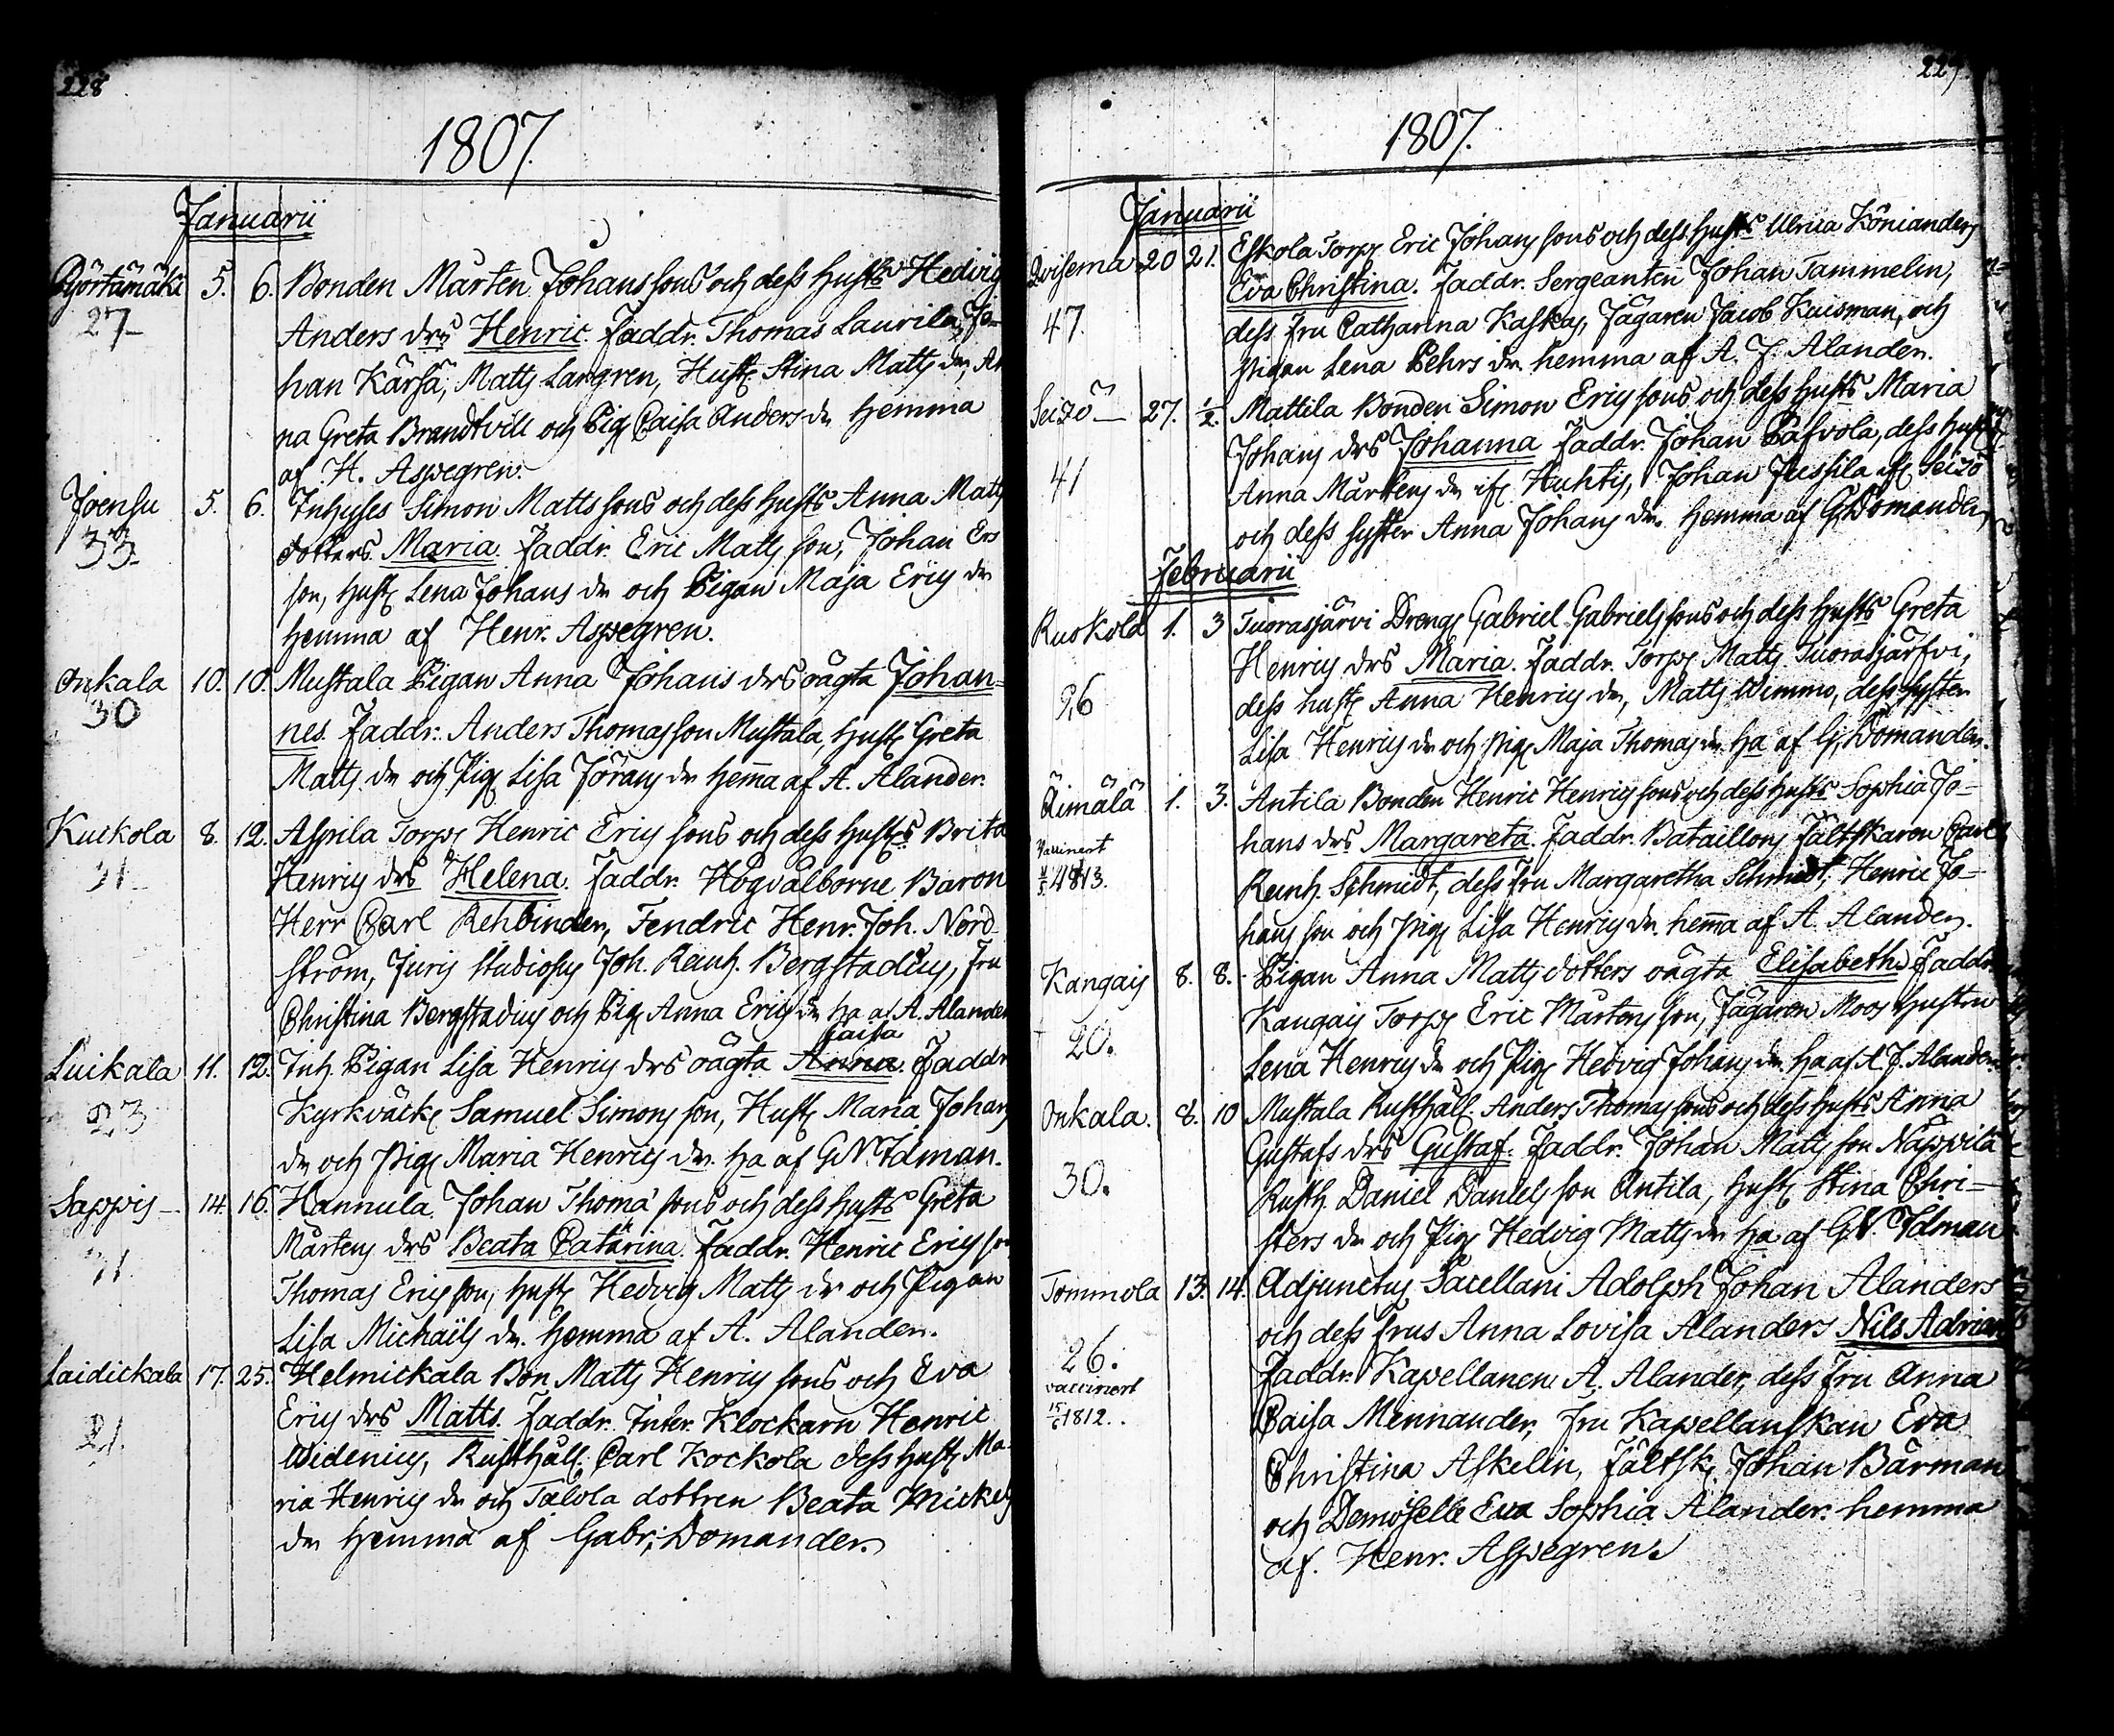 228
1807
Januarii
Pyörtämäki 5. 6. Bonden Mårten Johans sons och dess hust: Hedvig
27 Anders drs Henric. Faddr. Thomas Laurila, Jo-
han Kärsä, Matts Largren, Hust: Stina Matts dr, An
na Greta Brandtvill och Pig: Caisa Anders dr hemma
af H. Aspegren.
Joensu 5. 6. Inhyses Simon Matts sons och dess hust:s Anna Matts
33 dotters Maria. Faddr. Eric Matts son, Johan Ers
son, hust: Lena Johans dr och Pigan Maja Erics dr
hemma af Henr. Aspegren.
Onkala 10. 10. Mustala Pigan Anna Johans drs oägta Johan=
30 nes. Faddr: Anders Thomas son Mustala, hust: Greta
Matts dr och Pig: Lisa Jörans dr hema af A. Alander.
Kuckola 8. 12. Asprila Torp: Henric Erics sons och dess hust:s Brita
31 Henrics drs Helena. Faddr. Högvälborne Baron
Herr Carl Rehbinder, Fendric Henr. Joh. Nord
ström, Juris studiosus Joh. Reinh. Bergstadius, fru
Christina Bergstadius och Pig: Anna Erics dr ha af A. Alander
Caisa
Luikala 11. 12. Inh. Pigan Lisa Henrics drs oägta Anna. Faddr
23 Kyrkväck: Samuel Simons son, Hust: Maria Johans
dr och Pig: Maria Henrics dr. ha af G N Idman.
Sappis 14. 16. Hannula Johan Thomæ sons och dess hust:s Greta
31 Mårtens drs Beata Catarina. Faddr. Henric Erics son
Thomas Erics son, hust: Hedvig Matts dr och Pigan
Lisa Michaëls dr. hemma af A. Alander.
Laidickala 17. 25. Helmickala Bon Matts Henrics sons och Eva
21. Erics drs Matts. Faddr. Inter. Klockarn Henric
Widenius, Rusthåll: Carl Kockola dess hust: Ma-
ria Henrics dr och Talola dottren Beata Mickels
dr hemma af Gabr: Domander.
227
1807.
Januarii
20 21. Eskola Torp: Eric Johans sons och dess hust:s Ulrica Köniander
47. Eva Christina. Faddr. Sergeanten Johan Tammelin,
dess fru Catharina Kaskas, Jägaren Jacob Kuisman, och
Pigan Lena Pehrs dr. hemma af A. J. Alander.
Seizö 27. 1/2. Mattila Bonden Simon Erics sons och dess hust:s Maria
41 Johans drs Johanna Faddr. Johan Pafvola, dess hust:
Anna Mårtens dr if: Huhtis, Johan Jussila if: Seizö
och dess syster Anna Johans dr. hemma af G. Domander
Februarii
Ruokola 1. 3 Tuorasjärvi Dreng: Gabriel Gabriels sons och dess hust:s Greta
26 Henrics drs Maria. Faddr. Torp: Matts Tuorasjärfvi,
dess hust: Anna Henrics dr, Matts Wimmo, dess syster
Lisa Henrics dr och pig: Maja Thomas dr ha af G. Domander.
Äimälä 1. 3. Antila Bonden Henric Henrics sons och dess hust:s Sophia Jo=
Vaccinert hans drs Margareta. Faddr. Bataillons Fältskären Carl
1813. Reinh. Schmidt, dess fru Margaretha Schmidt, Henric Jo=
hans son och pig: Lisa Henrics dr. hema af A. Alander.
Kangais 8. 8. Pigan Anna Matts dotters oägta Elisabeth. Faddr.
20. Kangais Torp: Eric Mårtens son, Jägaren Moos hustru
Lena Henrics dr och Pig: Hedvig Johans dr. ha af A. J. Alander
Onkala. 8. 10 Mustala Rusthåll: Anders Thomas sons och dess hust:s Anna
30. Gustafs drs Gustaf. Faddr. Johan Matts son Näppilä
Rusth. Daniel Daniels son Antila, hust: Stina Chri=
sters dr och Pig: Hedvig Matts dr ha af G N. Idman
Tommola 13. 14. Adjunctus Sacellani Adolph Johan Alanders
26. och dess frus Anna Lovisa Alanders Nils Adrian
vaccinert Faddr. Kapellanen A. Alander, dess fru Anna
15/6 1812. Caisa Mennander, fru Kapellanskan Eva
Christina Askelin, Fältsk: Johan Bärman
och Demoiselle Eva Sophia Alander. hemma
af. Henr. Aspegren.